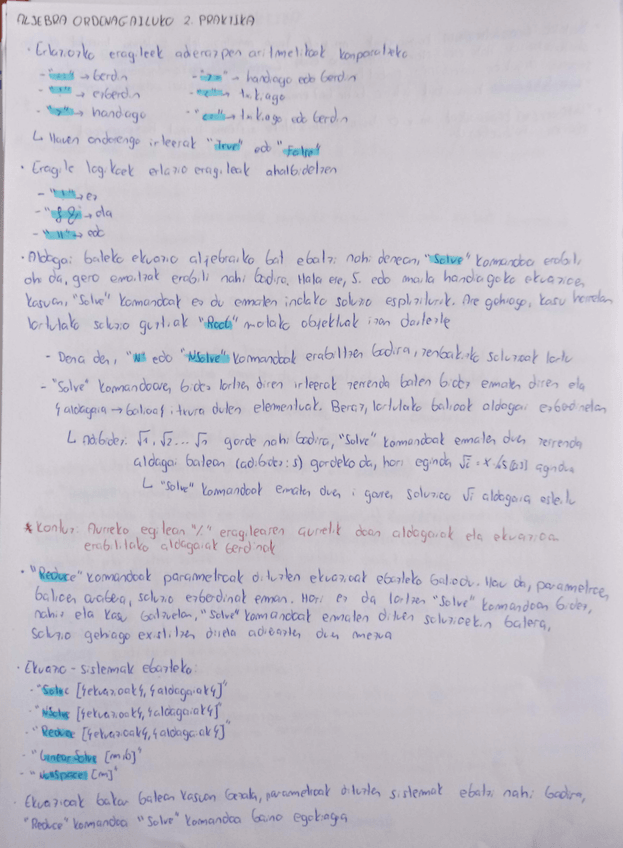 ALJEBRA ORDENAGAILUKO 2. PRAKTIKA
· Erlaziozko eragileek adierazpen aritmetikoak konparatzeko
- "==" → berdin - ">=" → handago edo berdin
→ ezberdin - "<" → txikiago
- ">" → handago - "<=" → txikiago edo berdin
↳ Hauen ondorengo irteerak "True" edo "False"
· Eragile logikoek erlazio eragileak ahalbidetzen
- "!" → ez
- "&&" → eta
- "||" → edo
· Aldagai bateko ekuazio aljebraiko bat ebatzi nahi denean, "Solve" komandoa erabili
ohi da, gero emaitzak erabili nahi badira. Hala ere, 5. edo maila handiagoko ekuazioen
kasuan, "Solve" komandoak ez du ematen indako soluzio espliziturik. Are gehiago, kasu horretan
lortutako soluzio guztiak "Root" motako objektuak izan daitezke
- Dena den, "N" edo "NSolve" komandoak erabiltzen badira, zenbakizko soluzioak lortu
- "Solve" komandoaren bidez lortzen diren irteerak zerrenda baten bidez ematen diren eta
{aldagaia → balioa} itxura duten elementuak. Beraz, lortutako balioak aldagai ezberdinetan
↳ adibidez: √1, √2 ... √n gorde nahi badira, "Solve" komandoak ematen duen zerrenda
aldagai batean (adibidez: s) gordeko da, hori eginda √i = x /. s[[i]] agindua
↳ "Solve" komandoak ematen duen i garren soluzioa √i aldagaia esleitu
* Kontuz: Aurreko egitean "/." eragilearen aurretik doan aldagaiak eta ekuazioan
erabilitako aldagaiak berdinak
· "Reduce" komandoak parametroak dituzten ekuazioak ebazteko balio du. Hau da, parametroen
balioen arabera, soluzio ezberdinak eman. Hori ez da lortzen "Solve" komandoaren bidez,
nahiz eta kasu batzuetan, "Solve" komandoak ematen dituen soluzioekin batera,
soluzio gehiago existitzen direla adierazten duen mezua
· Ekuazio-sistemak ebazteko:
- "Solve [{ekuazioak}, {aldagaiak}]"
- "NSolve [{ekuazioak}, {aldagaiak}]"
- "Reduce [{ekuazioak}, {aldagaiak}]"
- "LinearSolve [m,b]"
- "NullSpace [m]"
· Ekuazioak bakar batean kasuan bezala, parametroak dituzten sistemak ebatzi nahi badira,
"Reduce" komandoa "Solve" komandoa baino egokiagoa